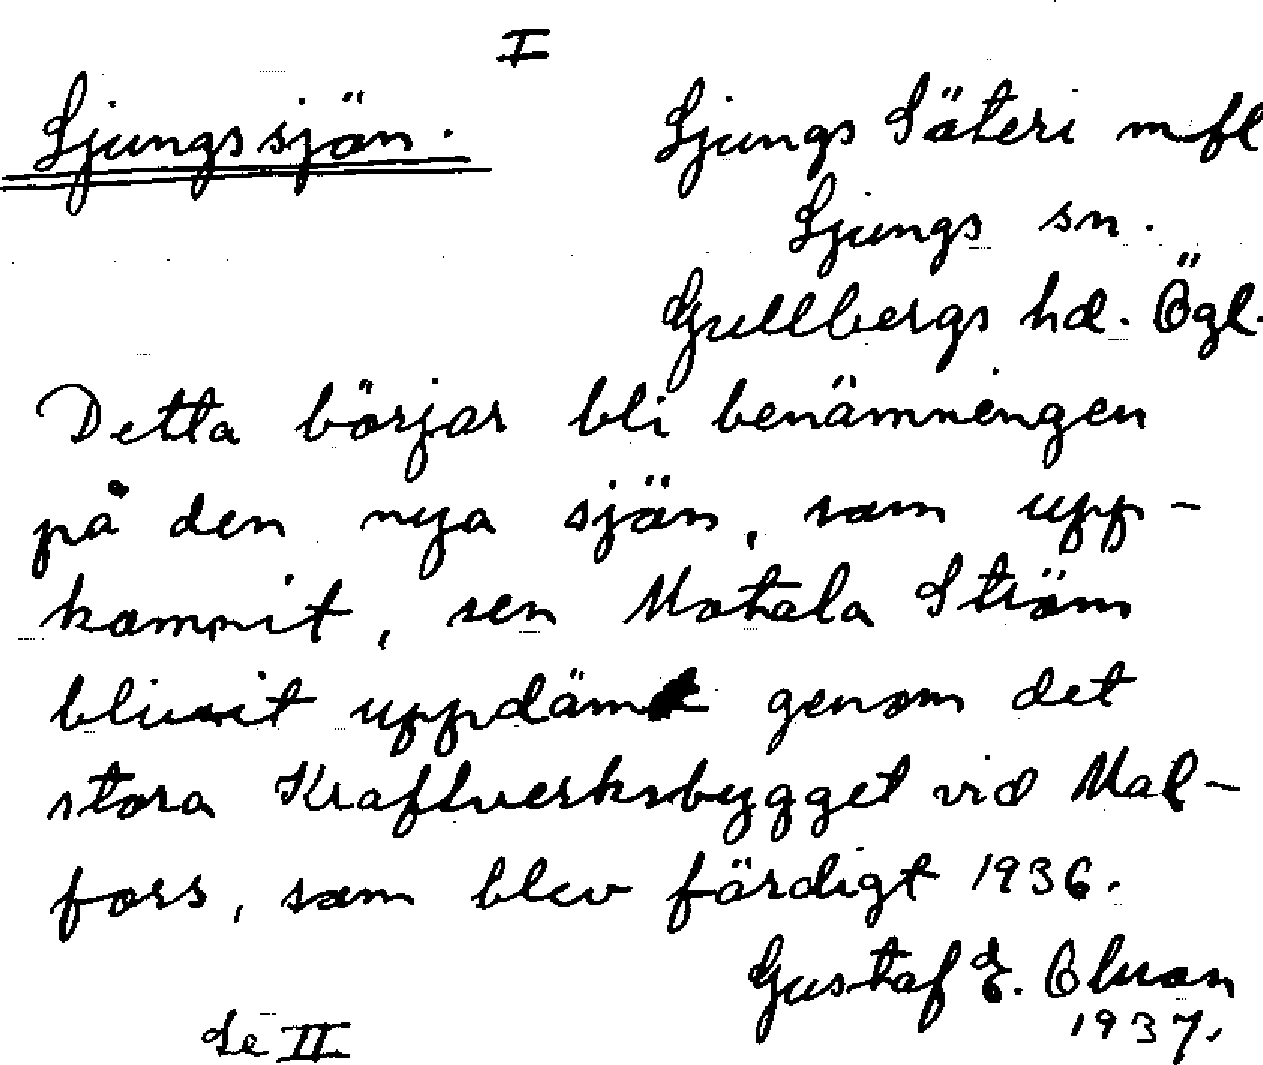 I
Ljungssjön. Ljungs Säteri mfl
Ljungs sn.
Gullbergs hd. Ögl.
Detta börjar bli benämningen
på den nya sjön, som upp-
kommit, sen Motala Ström
blivit uppdämt genom det
stora Kraftverksbygget vid Mal-
fors, som blev färdigt 1936.
Gustaf E.
1937.
Se II